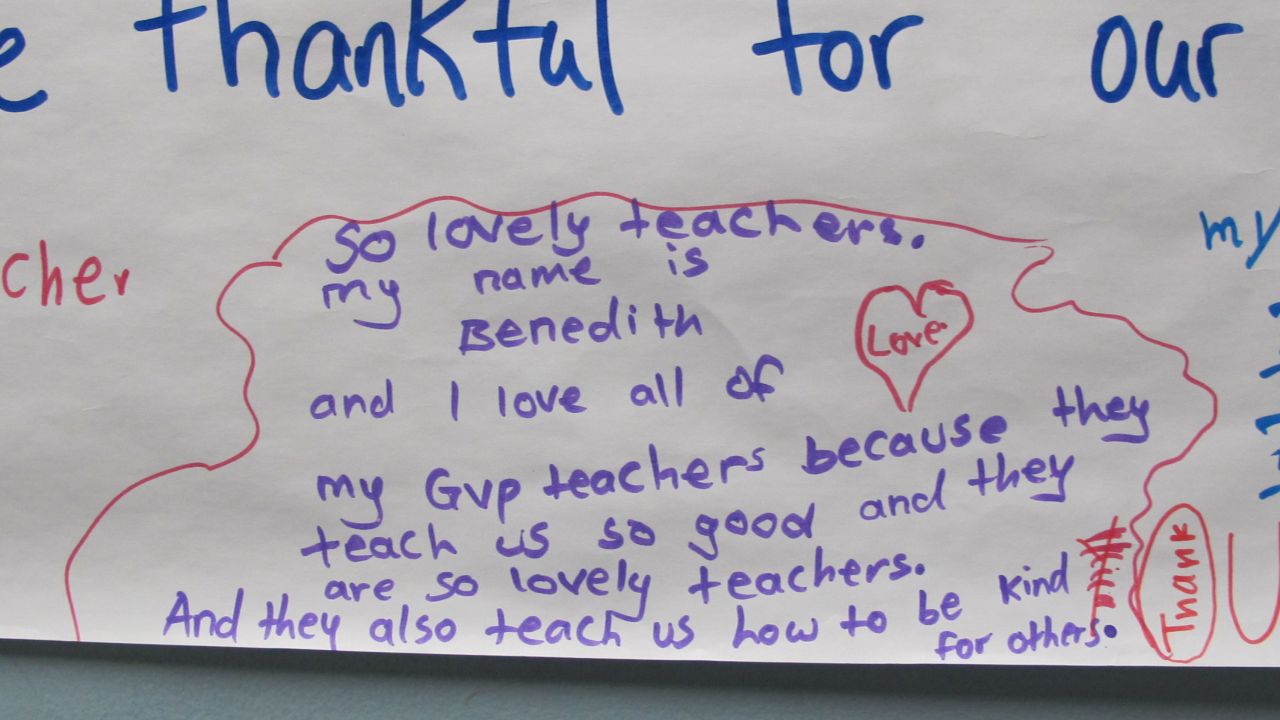 e thankful for our
cher
my
So lovely teachers.
my name is
Benedith
Love
and I love all of
my Gvp teachers because they
teach us so good and they
are so lovely teachers.
And they also teach us how to be kind
for others.
Thank
U